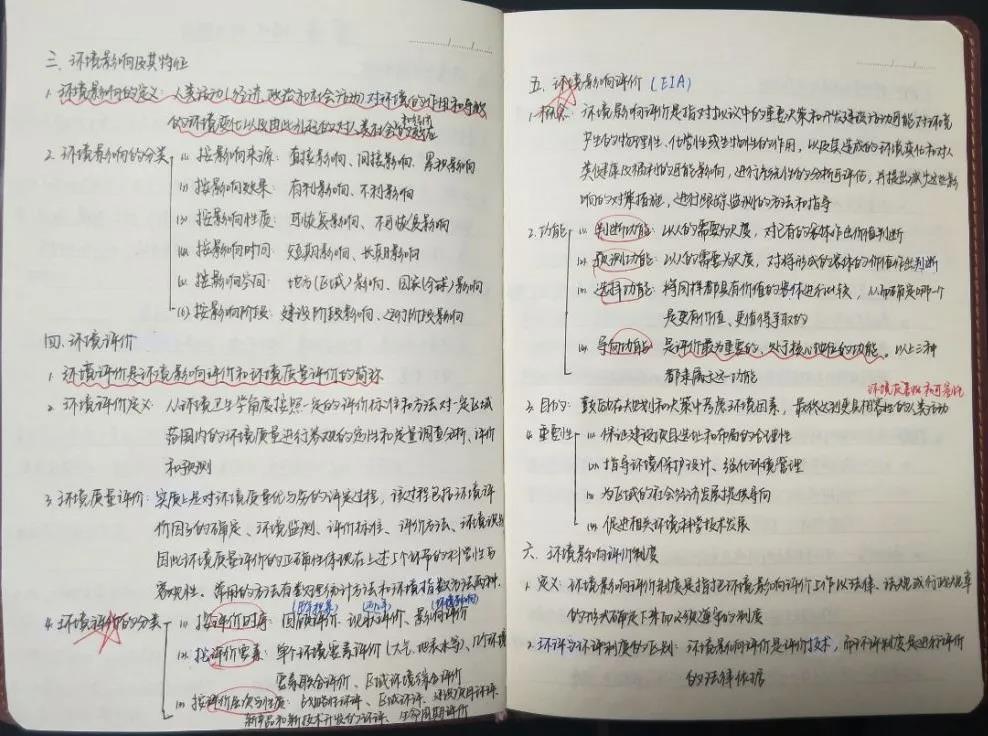 三、环境影响及其特征
1. 环境影响的定义：人类活动(经济、政治和社会活动)对环境的作用和导致
的环境变化以及由此引起的对人类社会和经济的效应
2. 环境影响的分类
(1). 按影响来源：直接影响、间接影响、累积影响
(2). 按影响效果：有利影响、不利影响
(3). 按影响性质：可恢复影响、不可恢复影响
(4). 按影响时间：短期影响、长期影响
(5). 按影响空间：地方(区域)影响、国家(全球)影响
(6) 按影响阶段：建设阶段影响、运行阶段影响
四. 环境评价
1. 环境评价是环境影响评价和环境质量评价的简称
2. 环境评价定义：从环境卫生学角度按照一定的评价标准和方法对一定区域
范围内的环境质量进行客观的定性和定量调查分析、评价
和预测
3. 环境质量评价：实质上是对环境质量优与劣的评定过程，该过程包括环境评
价因子的确定、环境监测、评价标准、评价方法、环境识别
因此环境质量评价的正确性体现在上述5个环节的科学性与
客观性。常用的方法有数理统计方法和环境指数方法两种.
4. 环境评价的分类
(1). 按评价时序：回顾评价、现状评价、影响评价
(环境影响)
(2). 按评价要素：单个环境要素评价(大气、地表水等)、几个环境
要素联合评价、区域环境综合评价
(3). 按评价层次与性质：战略环评、区域环评、建设项目环评、
新产品和新技术开发的环评、生命周期评价
五. 环境影响评价 (EIA)
1. 概念：环境影响评价是指对拟议中的重要决策和开发建设活动可能对环境
产生的物理性、化学性或生物性的作用，以及其造成的环境变化和对人
类健康及福利的可能影响，进行系统性的分析与评估，并提出减少这些影
响的对策措施，进行跟踪监测的方法和指导
2. 功能
(1). 判断功能：以人的需要为尺度，对已有的客体作出价值判断
(2). 预测功能：以人的需要为尺度，对将形成的客体的价值作出判断
(3). 选择功能：将同样都具有价值的客体进行比较，从而确定哪一个
是更有价值、更值得争取的
(4). 导向功能 是评价最为重要的、处于核心地位的功能。以上三种
都隶属于这一功能
3. 目的：鼓励在规划和决策中考虑环境因素，最终达到更具相容性的人类活动
4. 重要性
(1). 保证建设项目选址和布局的合理性
(2). 指导环境保护设计、强化环境管理
(3). 为区域的社会经济发展提供导向
(4). 促进相关环境科学技术发展
六. 环境影响评价制度
1. 定义：环境影响评价制度是指把环境影响评价工作以法律、法规或行政规章
的形式确定下来而必须遵守的制度
2. 环评与环评制度的区别：环境影响评价是评价技术，而环评制度是进行评价
的法律依据